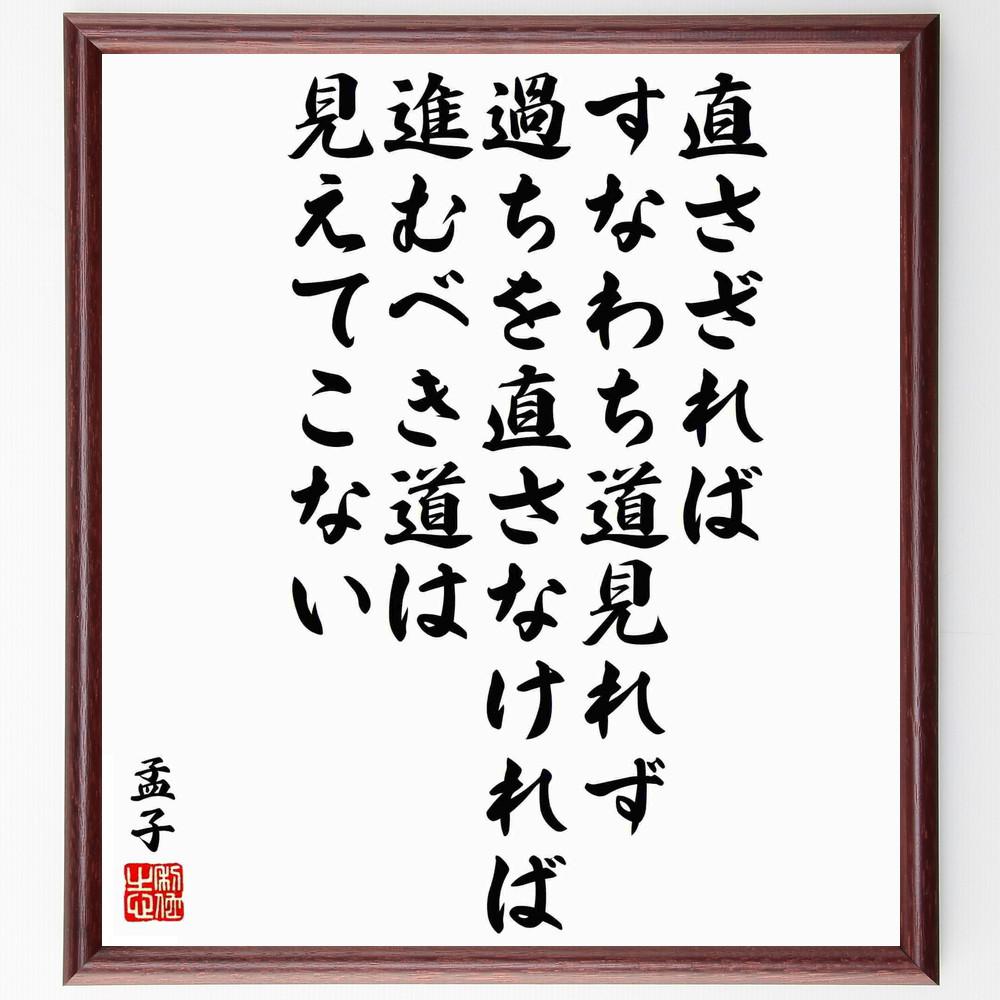 直さざれば
すなわち道見れず
過ちを直さなければ
進むべき道は
見えてこない
孟子